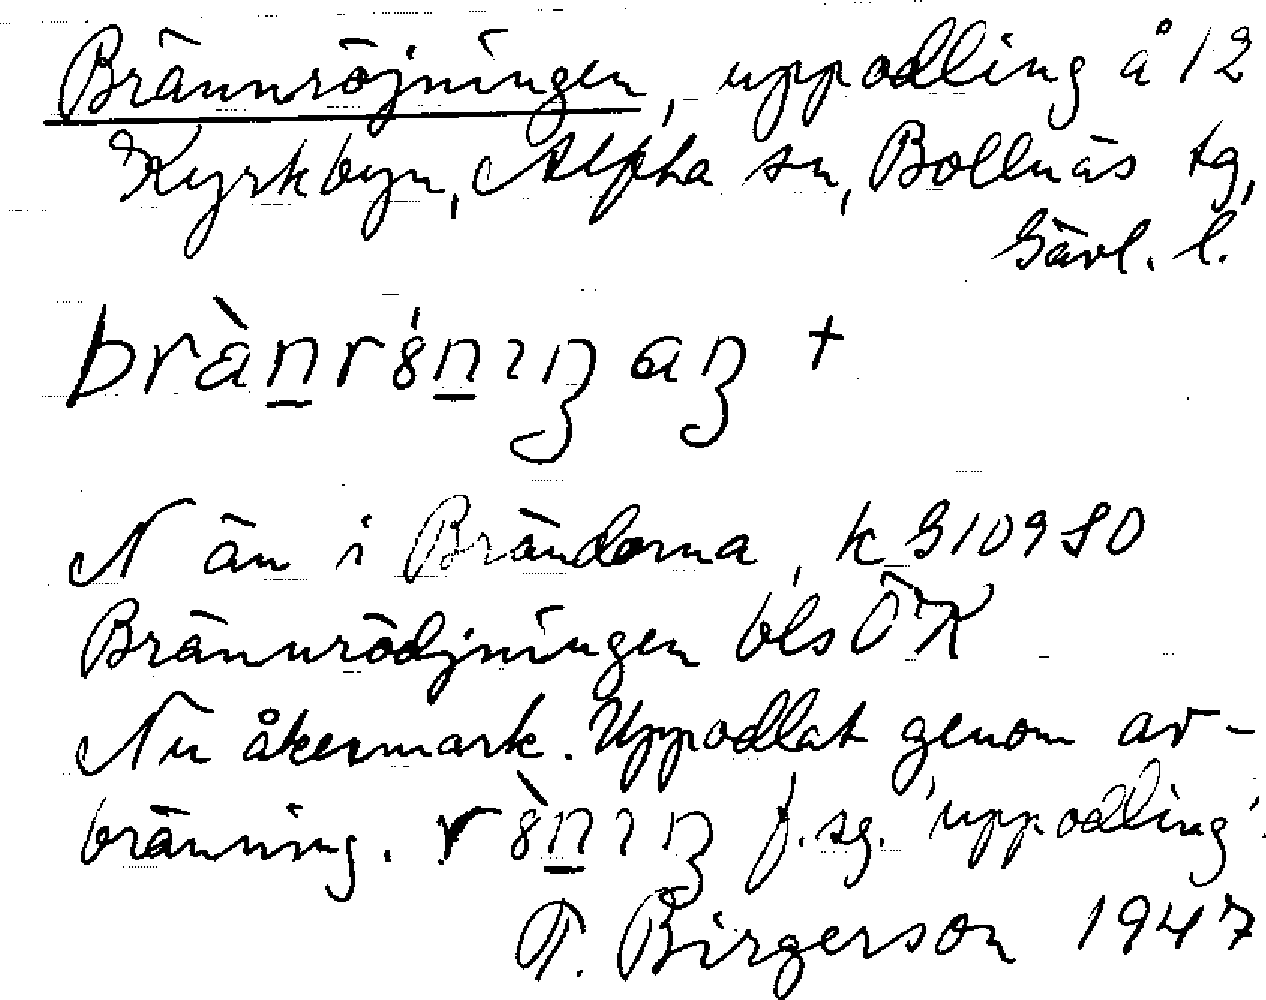 Brännröjningen, uppodling å 12
Kyrkbyn, Alfta sn, Bollnäs tg,
Gävl. l.
brànrȣ́nıŋ aŋ +
N än i Bränderna, k G10980
Brännrödjningen bls ÖK
Nu åkermark. Uppodlat genom av-
bränning. rȣ̀nıŋ f. sg. 'uppodling'.
T. Birgerson 1947